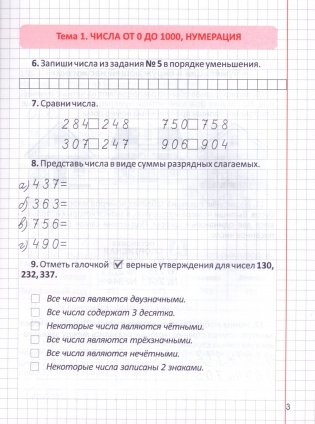 Тема 1. ЧИСЛА ОТ 0 ДО 1000, НУМЕРАЦИЯ
6. Запиши числа из задания № 5 в порядке уменьшения.
7. Сравни числа.
284□248 750□758
307□247 906□904
8. Представь числа в виде суммы разрядных слагаемых.
а) 437=
б) 363=
в) 756=
г) 490=
9. Отметь галочкой ☑ верные утверждения для чисел 130,
232, 337.
□ Все числа являются двузначными.
□ Все числа содержат 3 десятка.
□ Некоторые числа являются чётными.
□ Все числа являются трёхзначными.
□ Все числа являются нечётными.
□ Некоторые числа записаны 2 знаками.
3